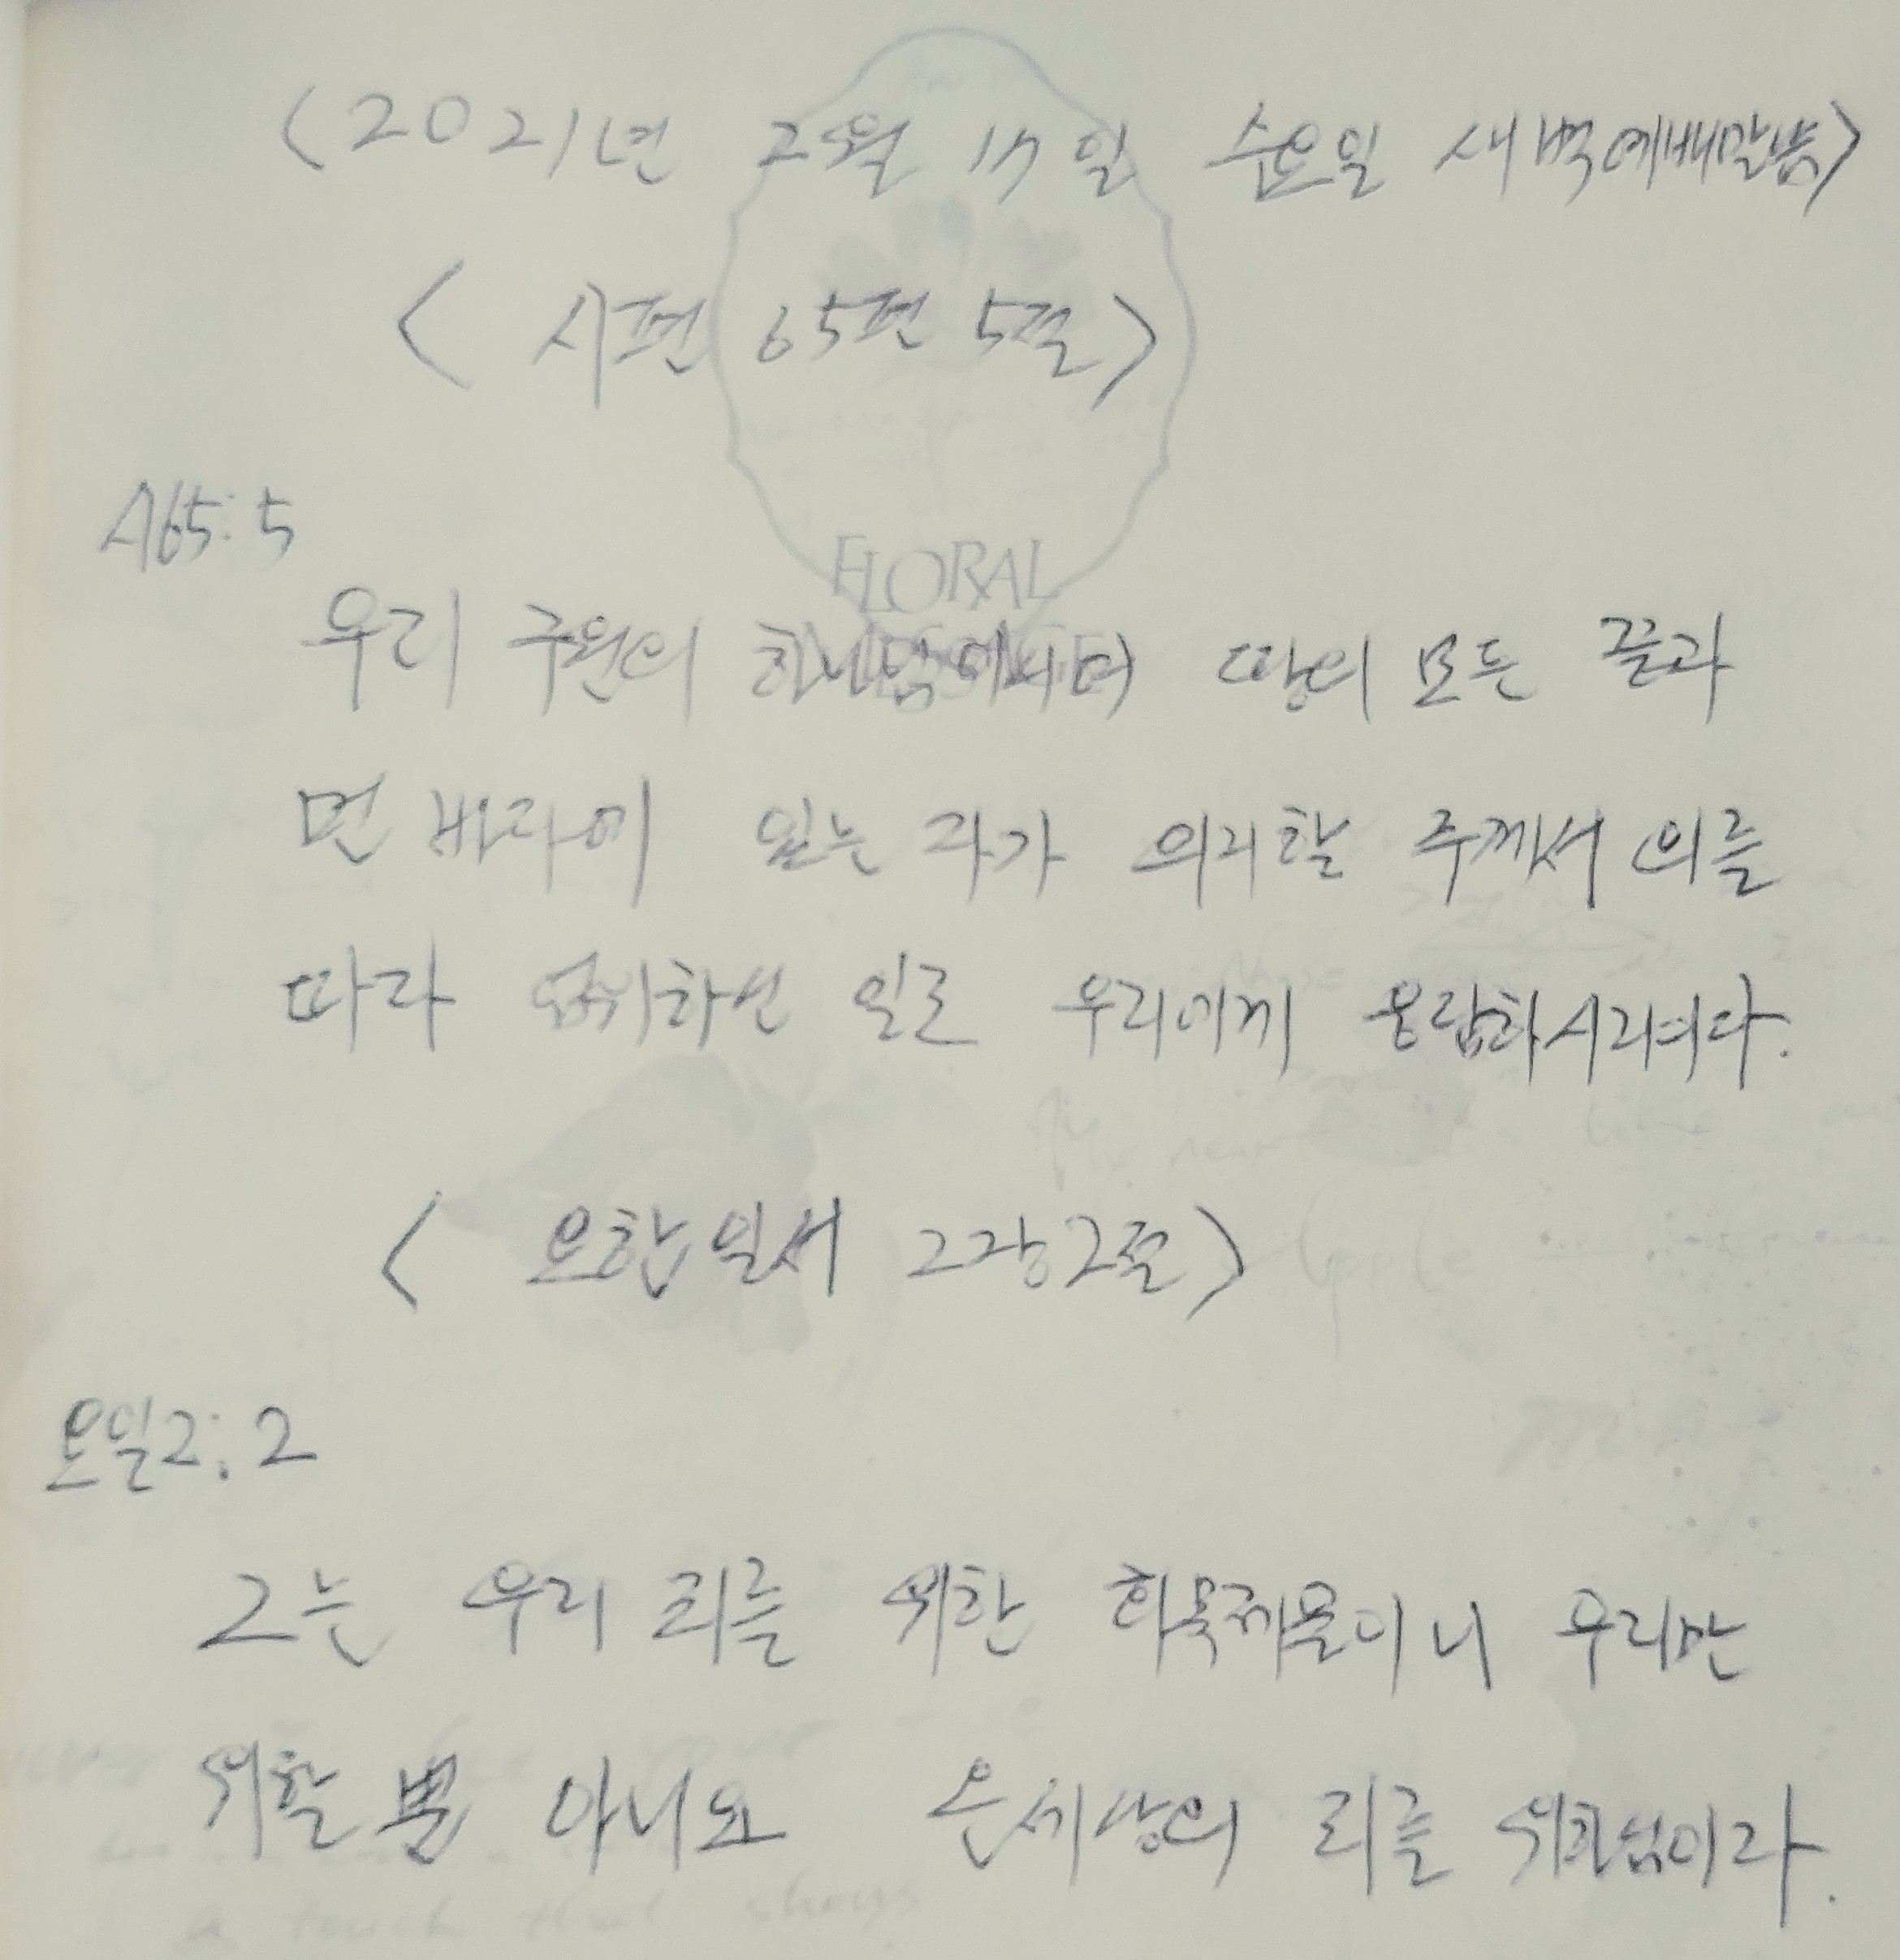 <2021년 2월 17일 수요일 새벽예배말씀>
<시편 65편 5절>
시65:5
FLORAL
우리 구원의 하나님이시여 땅의 모든 끝과
먼 바다에 있는 자가 의지할 주께서 의를
따라 엄위하신 일로 우리에게 응답하시리이다.
<요한일서 2장2절>
요일2:2
그는 우리 죄를 위한 화목제물이니 우리만
위할 뿐 아니요 온세상의 죄를 위하심이라.
a touch that shows